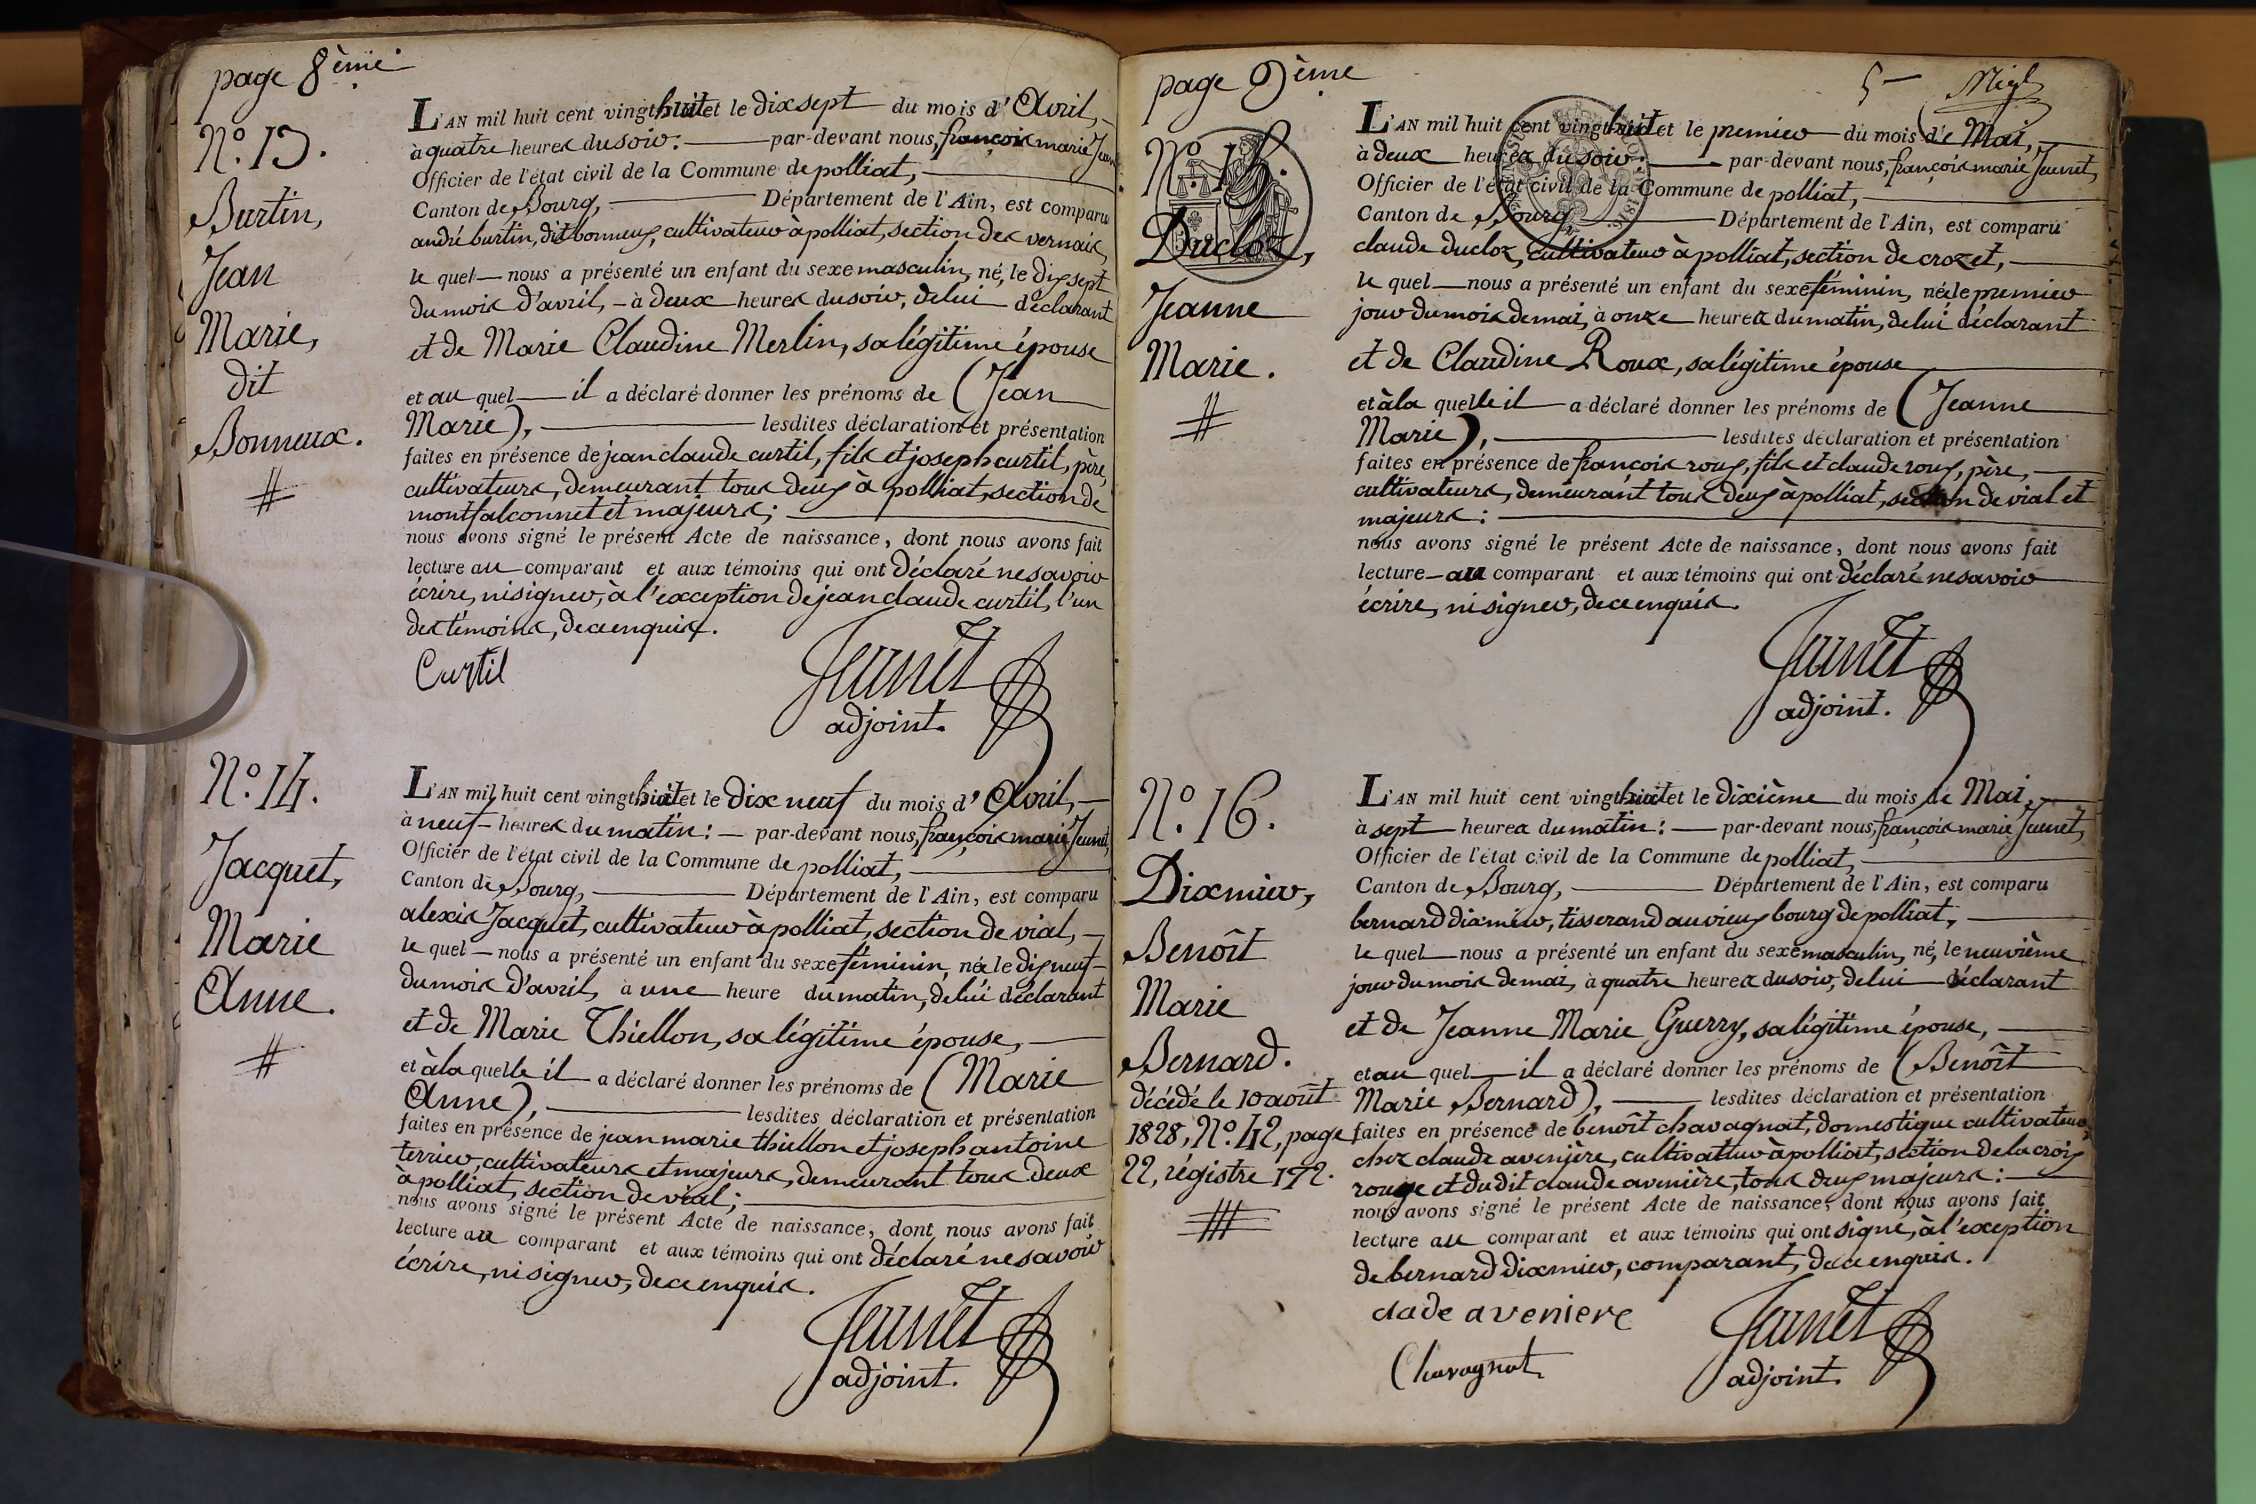 page 8ème
N.o 13.
Burtin,
Jean
Marie,
dit
Bonneux.
L'AN mil huit cent vingt huit et le dix sept du mois d'Avril,
à quatre heures du soir. par-devant nous, françois marie Jeunet
Officier de l'état civil de la Commune de polliat,
Canton de Bourg, Département de l'Ain, est comparu
andré burtin, dit bonneux, cultivateur à polliat, section des vernais,
le quel nous a présenté un enfant du sexe masculin, né, le dix sept
du mois d'avril, à deux heures du soir, de lui déclarant
et de Marie Claudine Merlin, sa légitime épouse
et au quel il a déclaré donner les prénoms de (Jean
Marie), lesdites déclaration et présentation
faites en présence de jean claude curtil, fils et joseph curtil, père,
cultivateurs, demeurant tous deux à polliat, section de
montfalconnet et majeurs;
nous avons signé le présent Acte de naissance, dont nous avons fait
lecture au comparant et aux témoins qui ont déclaré ne savoir
écrire, ni signer, à l'exception de jean claude curtil, l'un
des témoins, de ce enquis.
Curtil
Jeunet
adjoint.
N.o 14.
Jacquet,
Marie
Anne.
L'AN mil huit cent vingt huit et le dix neuf du mois d'Avril,
à neuf heures du matin: par-devant nous, françois marie Jeunet,
Officier de l'état civil de la Commune de polliat,
Canton de Bourg, Département de l'Ain, est comparu
alexis Jacquet, cultivateur à polliat, section de vial,
le quel nous a présenté un enfant du sexe féminin, née le dix neuf
du mois d'avril, à une heure du matin, de lui déclarant
et de Marie Thiellon, sa légitime épouse,
et à la quelle il a déclaré donner les prénoms de (Marie
Anne), lesdites déclaration et présentation
faites en présence de jean marie thiellon et joseph antoine
terrier, cultivateurs et majeurs, demeurant tous deux
à polliat, section de vial;
nous avons signé le présent Acte de naissance, dont nous avons fait
lecture au comparant et aux témoins qui ont déclaré ne savoir
écrire, ni signer, de ce enquis.
Jeunet
adjoint.
page 9ème
5
N.o 15.
Ducloz,
Jeanne
Marie.
L'AN mil huit cent vingt huit et le premier du mois de Mai,
à deux heures du soir: par-devant nous, françois marie Jeunet,
Officier de l'état civil de la Commune de polliat,
Canton de Bourg Département de l'Ain, est comparu
claude ducloz, cultivateur à polliat, section de crozet,
le quel nous a présenté un enfant du sexe féminin, née le premier
jour du mois de mai, à onze heures du matin, de lui déclarant
et de Claudine Roux, sa légitime épouse
et à la quelle il a déclaré donner les prénoms de (Jeanne
Marie), lesdites déclaration et présentation
faites en présence de françois roux, fils et claude roux, père,
cultivateurs, demeurant tous deux à polliat, section de vial et
majeurs:
nous avons signé le présent Acte de naissance, dont nous avons fait
lecture au comparant et aux témoins qui ont déclaré ne savoir
écrire, ni signer, de ce enquis.
Jeunet
adjoint.
N.o 16.
Dixmier,
Benoît
Marie
Bernard.
décédé le 10 août
1828, N.o 42, page
22, régistre 172.
L'AN mil huit cent vingt huit et le dixième du mois de Mai,
à sept heures du matin: par-devant nous, françois marie Jeunet,
Officier de l'état civil de la Commune de polliat,
Canton de Bourg, Département de l'Ain, est comparu
bernard dixmier, tisserand au vieux bourg de polliat,
le quel nous a présenté un enfant du sexe masculin, né, le neuvième
jour du mois de mai, à quatre heures du soir, de lui déclarant
et de Jeanne Marie Guerry, sa légitime épouse,
et au quel il a déclaré donner les prénoms de (Benoît
Marie Bernard), lesdites déclaration et présentation
faites en présence de benoît chavagnat, domestique cultivateur,
chez claude avenière, cultivateur à polliat, section de la croix
rouge et du dit claude avenière, tous deux majeurs:
nous avons signé le présent Acte de naissance, dont nous avons fait
lecture au comparant et aux témoins qui ont signé, à l'exception
de bernard dixmier, comparant, de ce enquis.
clade aveniere
Chavagnat
Jeunet
adjoint.